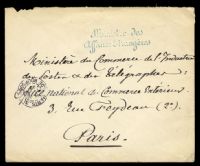 Ministère des
Affaires Etrangères
Ministère du Commerce de l'Industrie
des Postes et des Télégraphes
Office national du Commerce Extérieur
3, Rue Feydeau (2e).
Paris.